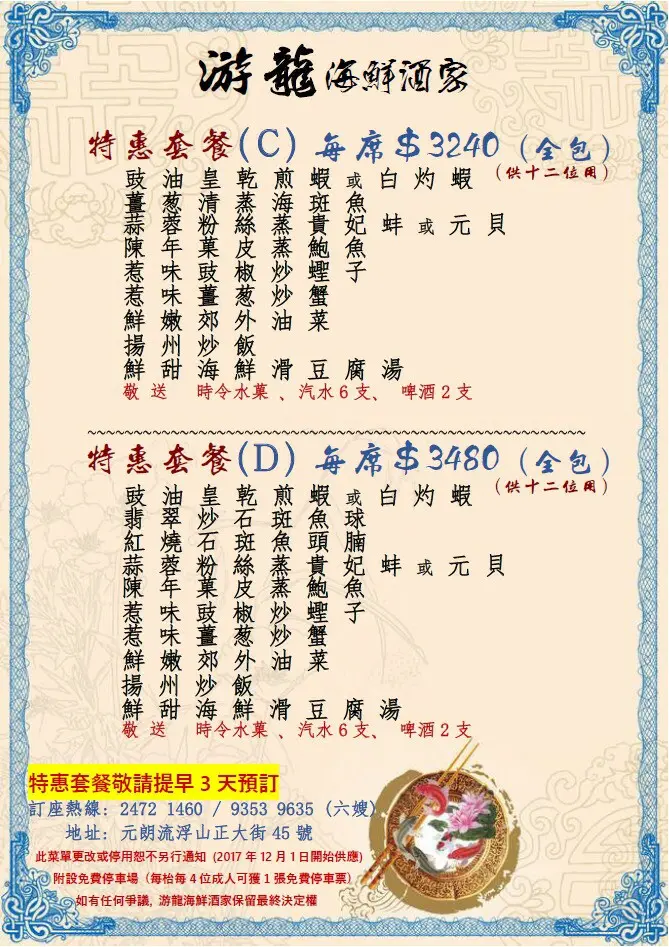 游龍海鮮酒家
特惠套餐(C) 每席$3240 (全包)
(供十二位用)
豉油皇乾煎蝦或白灼蝦
薑葱清蒸海斑魚
蒜蓉粉絲蒸貴妃蚌或元貝
陳年菓皮蒸鮑魚
惹味豉椒炒蟶子
惹味薑葱炒蟹
鮮嫩郊外油菜
揚州炒飯
鮮甜海鮮滑豆腐湯
敬送 時令水菓、汽水6支、啤酒2支
特惠套餐(D) 每席$3480 (全包)
(供十二位用)
豉油皇乾煎蝦或白灼蝦
翡翠炒石斑魚球
紅燒石斑魚頭腩
蒜蓉粉絲蒸貴妃蚌或元貝
陳年菓皮蒸鮑魚
惹味豉椒炒蟶子
惹味薑葱炒蟹
鮮嫩郊外油菜
揚州炒飯
鮮甜海鮮滑豆腐湯
敬送 時令水菓、汽水6支、啤酒2支
特惠套餐敬請提早 3 天預訂
訂座熱線: 2472 1460 / 9353 9635 (六嫂)
地址: 元朗流浮山正大街 45 號
此菜單更改或停用恕不另行通知 (2017 年 12 月 1 日開始供應)
附設免費停車場 (每枱每 4 位成人可獲 1 張免費停車票)
如有任何爭議, 游龍海鮮酒家保留最終決定權